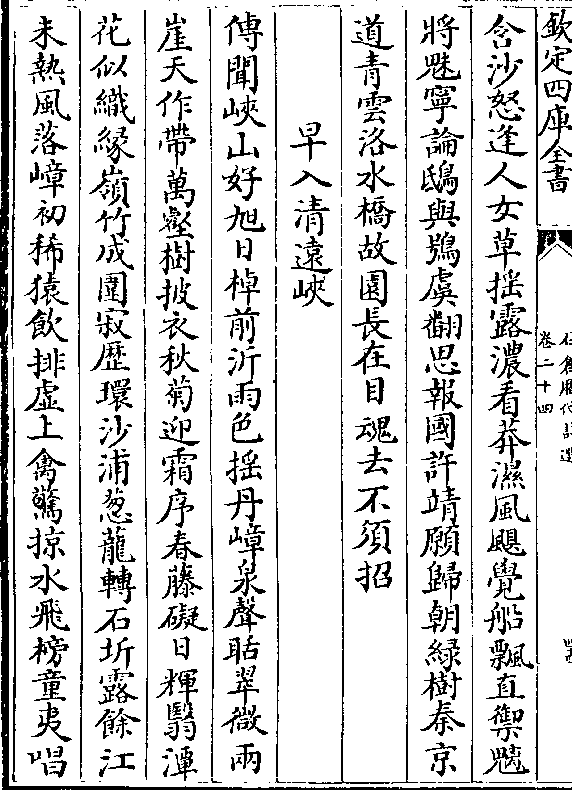 欽定四庫全書
卷二十四
含沙怒逢人女草摇露濃看莽濕風颶覺船飄直禦魑
將魅寧論鴟與鴞虞翻思報國許靖願歸朝緑樹秦京
道青雲洛水橋故園長在目魂去不須招
早入清逺峽
傳聞峽山好旭日棹前沂雨色摇丹嶂泉聲聒翠微兩
崖天作帶萬壑樹披衣秋菊迎霜序春藤礙日輝翳潭
花似織緣嶺竹成圍寂歴環沙浦葱蘢轉石圻露餘江
未熱風落嶂初稀猿飲排虚上禽驚掠水飛榜童夷唱